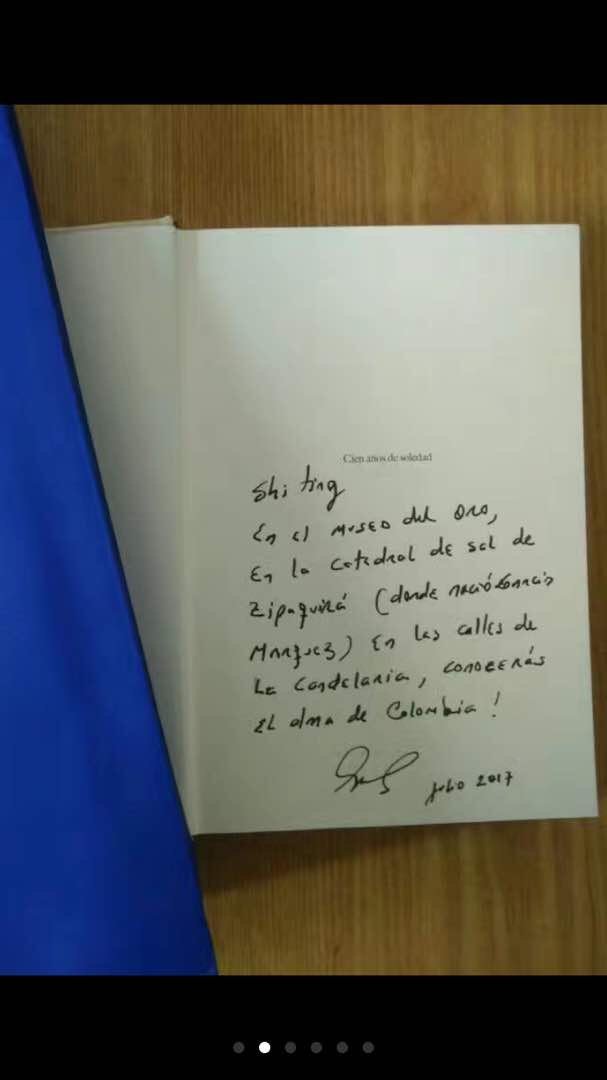 Cien años de soledad
Shi ting
En el museo del oro,
En la catedral de sal de
Zipaquirá (donde nació Garcia
Marquez) En las calles de
La Candelaria, conocerás
El alma de Colombia!
julio 2017